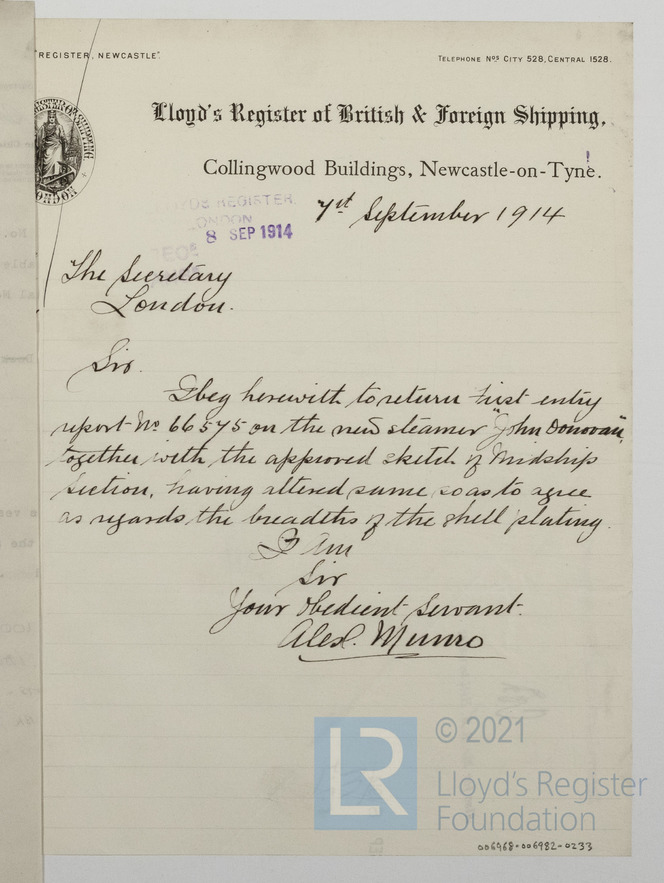 "REGISTER, NEWCASTLE".
TELEPHONE Nos CITY 528, CENTRAL 1528.
Lloyd's Register of British & Foreign Shipping,
Collingwood Buildings, Newcastle-on-Tyne.
7st September 1914
LLOYDS REGISTER
LONDON
8 SEP 1914
The Secretary
London.
Sir.
I beg herewith to return first entry
report No 66575 on the new steamer "John Donovan",
together with the approved sketch of Midship
Section, having altered same so as to agree
as regards the breadths of the shell plating.
I am
Sir
Your obedient servant.
Alex. Munro
LR
© 2021
Lloyd's Register
Foundation
006968-006982-0233